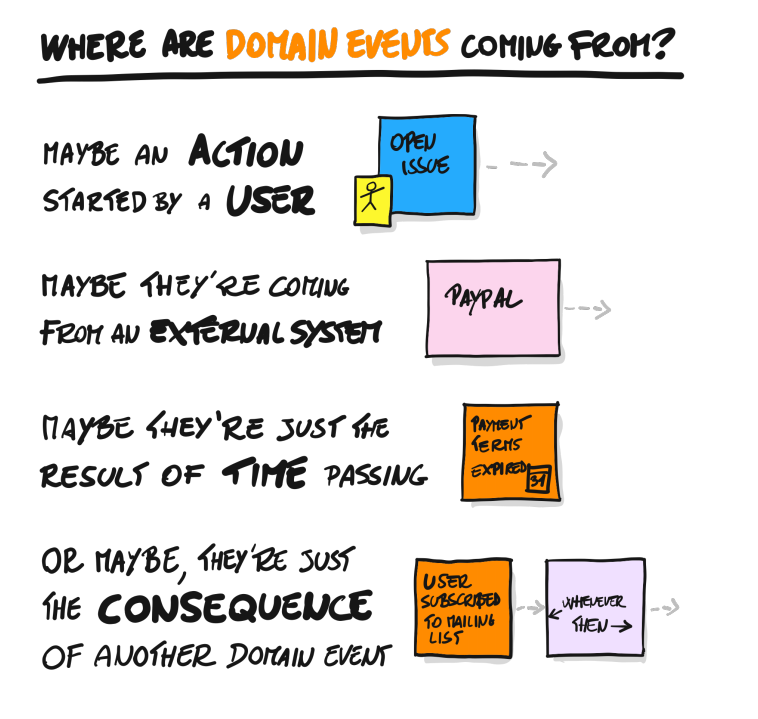 WHERE ARE DOMAIN EVENTS COMING FROM?
MAYBE AN ACTION
STARTED BY A USER
OPEN
ISSUE
MAYBE THEY'RE COMING
FROM AN EXTERNAL SYSTEM
PAYPAL
MAYBE THEY'RE JUST THE
RESULT OF TIME PASSING
PAYMENT
TERMS
EXPIRED
31
OR MAYBE, THEY'RE JUST
THE CONSEQUENCE
OF ANOTHER DOMAIN EVENT
USER
SUBSCRIBED
TO MAILING
LIST
WHENEVER
THEN